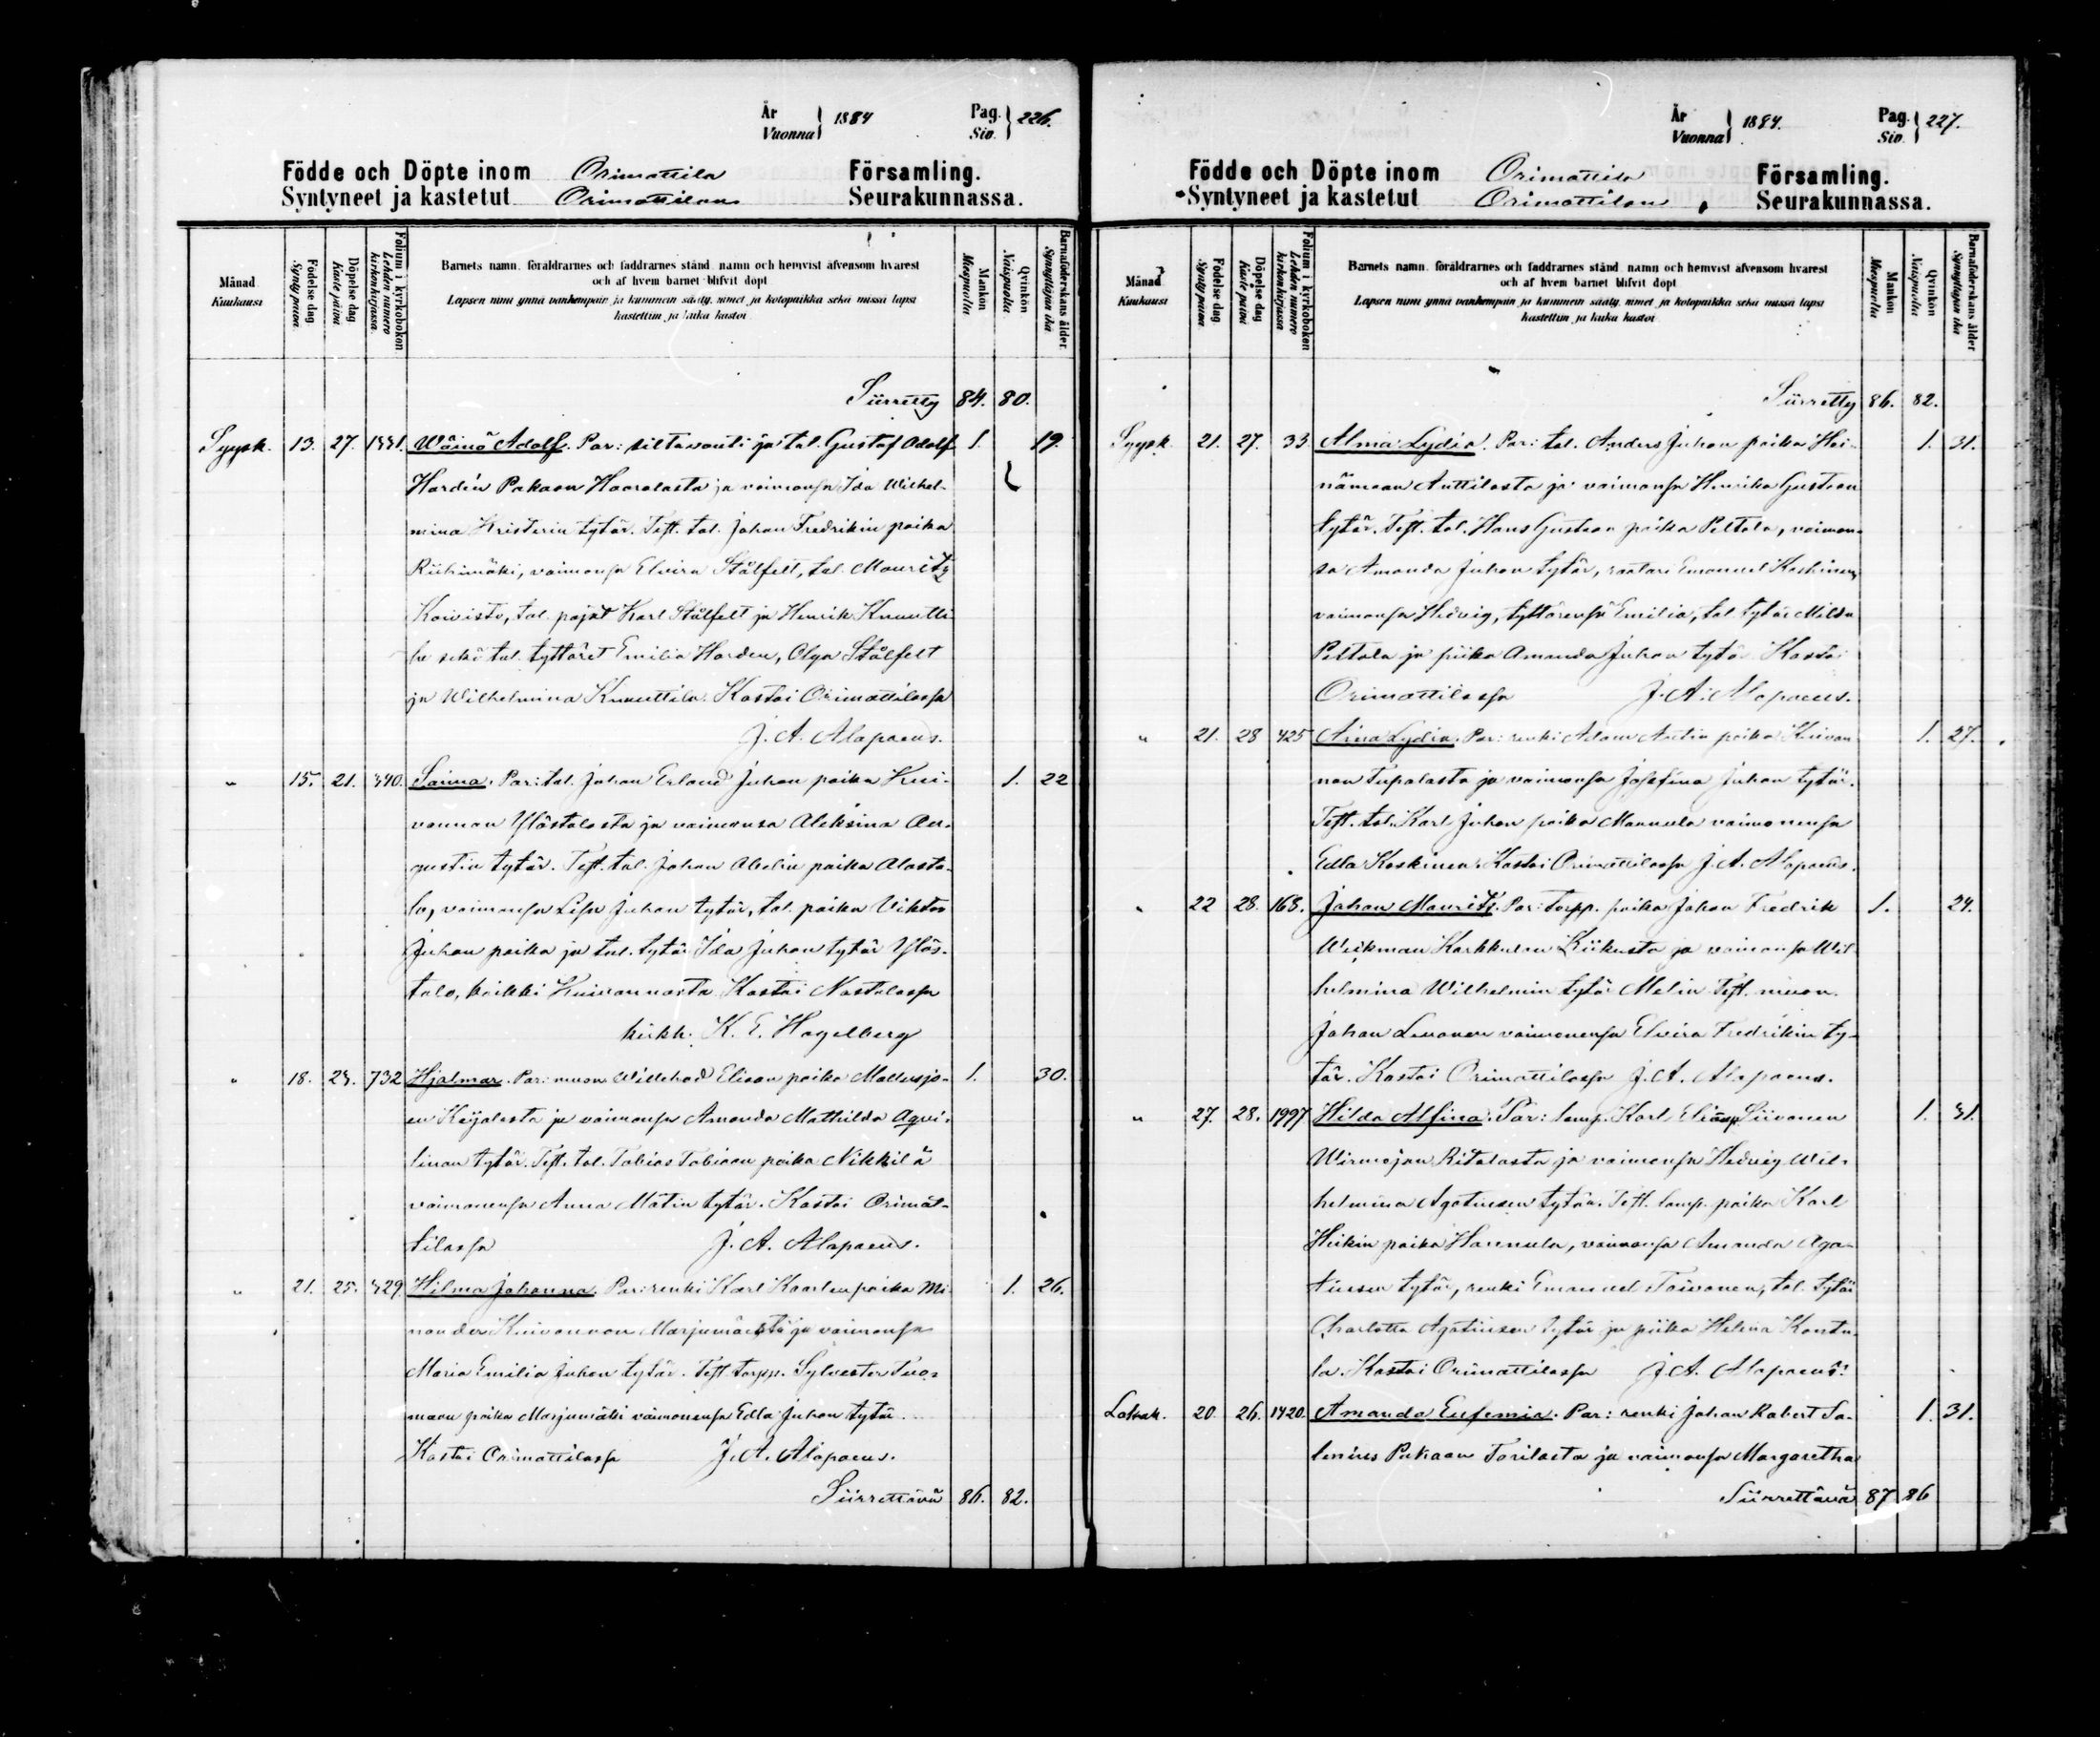 År
Vuonna } 1884
Pag.
Siv. } 226.
Födde och Döpte inom Orimattila Församling.
Syntyneet ja kastetut Orimattilan Seurakunnassa.
Månad
Kuukausi
Födelse dag
Synty päivä
Döpelse dag
Kaste päivä
Folium i kyrkoboken
Lehden numero kirkonkirjassa
Barnets namn, föräldrarnes och faddrarnes stånd, namn och hemvist äfvensom hvarest
och af hvem barnet blifvit döpt
Lapsen nimi ynnä vanhempain ja kummein sääty, nimet ja kotopaikka sekä missä lapsi
kastettiin ja kuka kastoi
Mankön
Miespuolia
Qvinkön
Naispuolia
Barnaföderskans ålder.
Synnyttäjän ikä
Siirretty 84. 80.
Syysk. 13. 27. 1331. Wäinö Adolf. Par: siltavouti ja tal. Gustaf Adolf 1. 19.
Hardén Pakaan Haaralasta ja vaimonsa Ida Wilhel-
mina Kristerin tytär. Test. tal. Johan Fredrikin poika
Riihimäki, vaimonsa Elvira Stålfelt, tal. Mauritz
Koivisto, tal. pojat Karl Stålfelt ja Henrik Knuutti-
la sekä tal. tyttäret Emilia Harden, Olga Stålfelt
ja Wilhelmina Knuuttila. Kastoi Orimattilassa
J. A. Alopaeus.
" 15. 21. 340. Saima. Par: tal. Johan Erland Juhon poika Kui- 1. 22
vannon Ylöstalosta ja vaimonsa Aleksina Au-
gustin tytär. Test. tal. Johan Abelin poika Alasta-
lo, vaimonsa Lisa Juhon tytär, tal. poika Viktor
Juhon poika ja tal. tytär Ida Juhon tytär Ylös-
talo, kaikki Kuivannosta. Kastoi Nastolassa
kirkh. K. E. Hagelberg
" 18. 24. 732 Hjalmar. Par: muon. Willehad Elisan poika Mallusjo- 1. 30.
en Keijalasta ja vaimonsa Amanda Mathilda Aqvi-
linan tytär. Test. tal. Tobias Tobiaan poika Nikkilä
vaimonensa Anna Matin tytär. Kastoi Orimat-
tilassa J. A. Alopaeus.
" 21. 25. 329 Hilma Johanna. Par: renki Karl Kaarlen poika Mi- 1. 26.
nander Kuivannon Marjamäestä ja vaimonsa
Maria Emilia Juhon tytär. Test. torpp. Sylvester Tuo-
maan poika Marjamäki vaimonensa Edla Juhon tytär.
Kastoi Orimattilassa J. A. Alopaeus.
Siirrettävä 86. 82.
År
Vuonna } 1884.
Pag.
Siv. } 227.
Födde och Döpte inom Orimattila Församling.
Syntyneet ja kastetut Orimattilan Seurakunnassa.
Månad
Kuukausi
Födelse dag
Synty päivä
Döpelse dag
Kaste päivä
Folium i kyrkoboken
Lehden numero kirkonkirjassa
Barnets namn, föräldrarnes och faddrarnes stånd, namn och hemvist äfvensom hvarest
och af hvem barnet blifvit döpt
Lapsen nimi ynnä vanhempain ja kummein sääty, nimet ja kotopaikka sekä missä lapsi
kastettiin ja kuka kastoi
Mankön
Miespuolia
Qvinkön
Naispuolia
Barnaföderskans ålder
Synnyttäjän ikä
Siirretty 86. 82.
Syysk. 21. 27. 33 Alma Lydia. Par: tal. Anders Juhon poika Hei- 1. 31.
nämaan Anttilasta ja vaimonsa Henrika Gustaan
tytär. Test. tal. Hans Gustaan poika Peltola, vaimon-
sa Amanda Juhon tytär, räätäri Emanuel Koskinen,
vaimonsa Hedvig, tyttärensä Emilia, tal. tytär Milda
Peltola ja piika Amanda Juhon tytär. Kastoi
Orimattilassa J. A. Alopaeus.
" 21. 28 425 Aina Lydia. Par: renki Adam Antin poika Kuivan- 1. 27.
non Tupalasta ja vaimonsa Josefina Juhon tytär.
Test. tal. Karl Juhon poika Mannula vaimonensa
Edla Koskinen. Kastoi Orimattilassa J. A. Alopaeus.
" 22 28. 168. Johan Mauritz. Par: torpp. poika Johan Fredrik 1. 24.
Weikman Karkkulan Kiikusta ja vaimonsa Wil-
helmina Wilhelmin tytär Melin. Test. muon.
Johan Luuonen vaimonensa Elvira Fredrikin ty-
tär. Kastoi Orimattilassa J. A. Alopaeus.
" 27. 28. 1997 Hilda Alfina. Par: lamp. Karl Eliaanp. Siivonen 1. 31.
Wirmojan Ritalasta ja vaimonsa Hedvig Wil-
helmina Agatiusen tytär. Test. lamp. poika Karl
Heikin poika Hannula, vaimonsa Amanda Aga-
tiusen tytär, renki Emanuel Toivonen, tal. tytär
Charlotta Agatiusen tytär ja piika Helena Kontu-
la. Kastoi Orimattilassa J. A. Alopaeus.
Lokak. 20. 26. 1420. Amanda Eufemia. Par: renki Johan Robert Sa- 1. 31.
lenius Pakaan Torilasta ja vaimonsa Margaretha
Siirrettävä 87 86